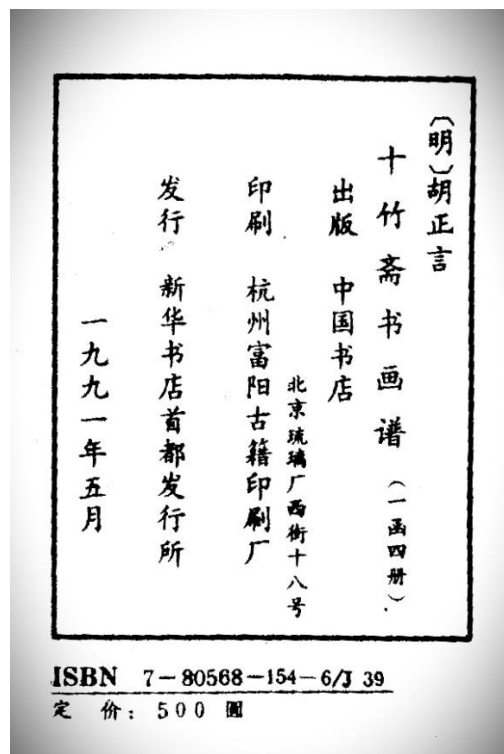 〔明〕胡正言
十竹斋书画谱（一函四册）
出版 中国书店
北京琉璃厂西街十八号
印刷 杭州富阳古籍印刷厂
发行 新华书店首都发行所
一九九一年五月
ISBN 7-80568-154-6/J 39
定 价: 500 圆